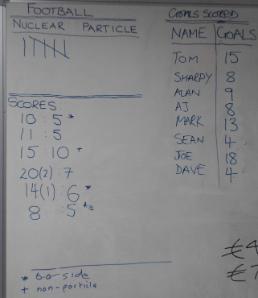 FOOTBALL
NUCLEAR PARTICLE
SCORES:
10 : 5 *
11 : 5
15 : 10 +
20(2) : 7
14(1) : 6 *
8 : 5
* 6 a side
+ non-particle
GOALS SCORED
NAME GOALS
TOM 15
SHARPY 8
ALAN 9
AJ 8
MARK 13
SEAN 4
JOE 18
DAVE 4
€4
€7